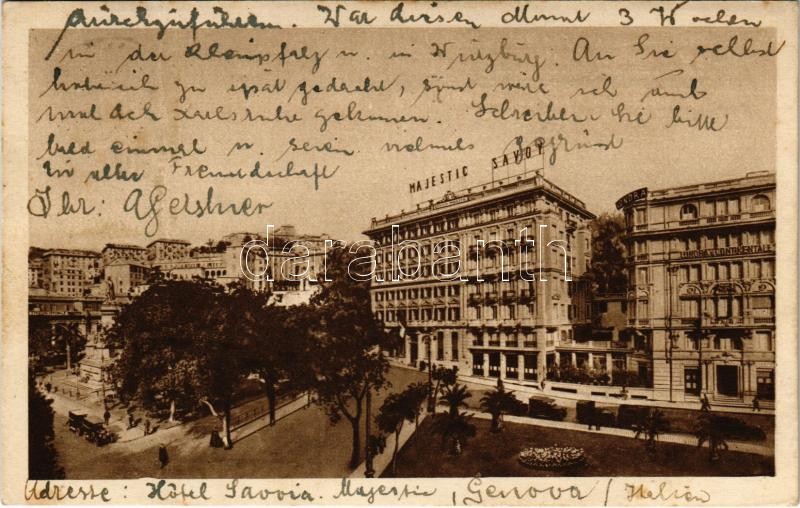 durchzuführen. War diesen Monat 3 Wochen
in der Rheinpfalz u. in Würzburg. An Sie selbst
habe ich zu spät gedacht, sonst wäre ich auch
mal nach Karlsruhe gekommen. Schreiben Sie bitte
bald einmal u. seien vielmals gegrüsst
In alter Freundschaft
Ihr:
MAJESTIC SAVOY
darabanth.com
Adresse: Hôtel Savoia Majestic, Genova / Italien